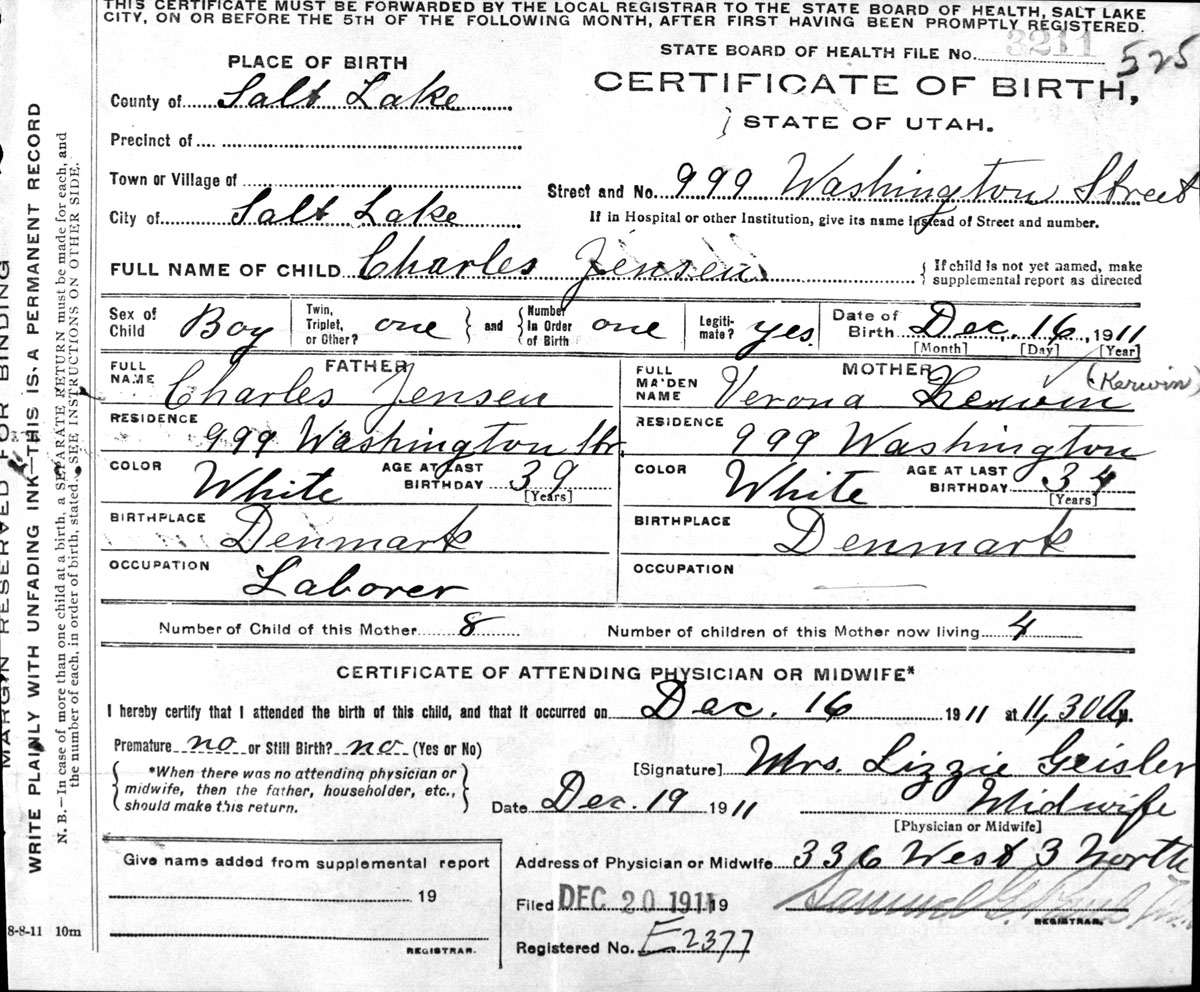 THIS CERTIFICATE MUST BE FORWARDED BY THE LOCAL REGISTRAR TO THE STATE BOARD OF HEALTH, SALT LAKE
CITY, ON OR BEFORE THE 5TH OF THE FOLLOWING MONTH, AFTER FIRST HAVING BEEN PROMPTLY REGISTERED.
STATE BOARD OF HEALTH FILE No. 3211 525
PLACE OF BIRTH
CERTIFICATE OF BIRTH,
STATE OF UTAH.
County of Salt Lake
Precinct of
Town or Village of
Street and No. 999 Washington Street
City of Salt Lake
If in Hospital or other Institution, give its name instead of Street and number.
FULL NAME OF CHILD Charles Jensen
If child is not yet named, make
supplemental report as directed
Sex of Child Boy
Twin, Triplet, or Other? one
and
Number In Order of Birth one
Legiti-mate? yes.
Date of Birth Dec. 16, 1911
[Month] [Day] [Year]
FATHER
FULL NAME Charles Jensen
RESIDENCE 999 Washington Str.
COLOR White
AGE AT LAST BIRTHDAY 39
[Years]
BIRTHPLACE Denmark
OCCUPATION Laborer
MOTHER
FULL MAIDEN NAME Verona Kerwin (Kerwin)
RESIDENCE 999 Washington
COLOR White
AGE AT LAST BIRTHDAY 34
[Years]
BIRTHPLACE Denmark
OCCUPATION
Number of Child of this Mother 8
Number of children of this Mother now living 4
CERTIFICATE OF ATTENDING PHYSICIAN OR MIDWIFE*
I hereby certify that I attended the birth of this child, and that it occurred on Dec. 16 1911 at 11,30 A M.
Premature no or Still Birth? no (Yes or No)
*When there was no attending physician or
midwife, then the father, householder, etc.,
should make this return.
[Signature] Mrs. Lizzie Geisler
Date Dec. 19 1911
Midwife
[Physician or Midwife]
Give name added from supplemental report
19
REGISTRAR.
Address of Physician or Midwife 336 West 3 North
Filed DEC 20 1911 19
Samuel G. Paul
REGISTRAR.
Registered No. E2377
8-8-11 10m
MARGIN RESERVED FOR BINDING
WRITE PLAINLY WITH UNFADING INK—THIS IS A PERMANENT RECORD
N. B.—In case of more than one child at a birth, a SEPARATE RETURN must be made for each, and
the number of each, in order of birth, stated. SEE INSTRUCTIONS ON OTHER SIDE.